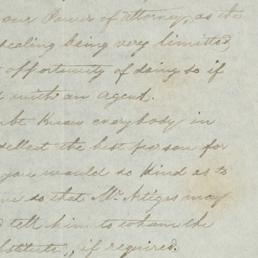 our Power of Attorney, as the
dealing being very limitted
opportunity of doing so if
with an Agent.
Know everybody in
sellect the best person for
you would so kind as to
me so that Mr. may
tell him to whom the
, if required.